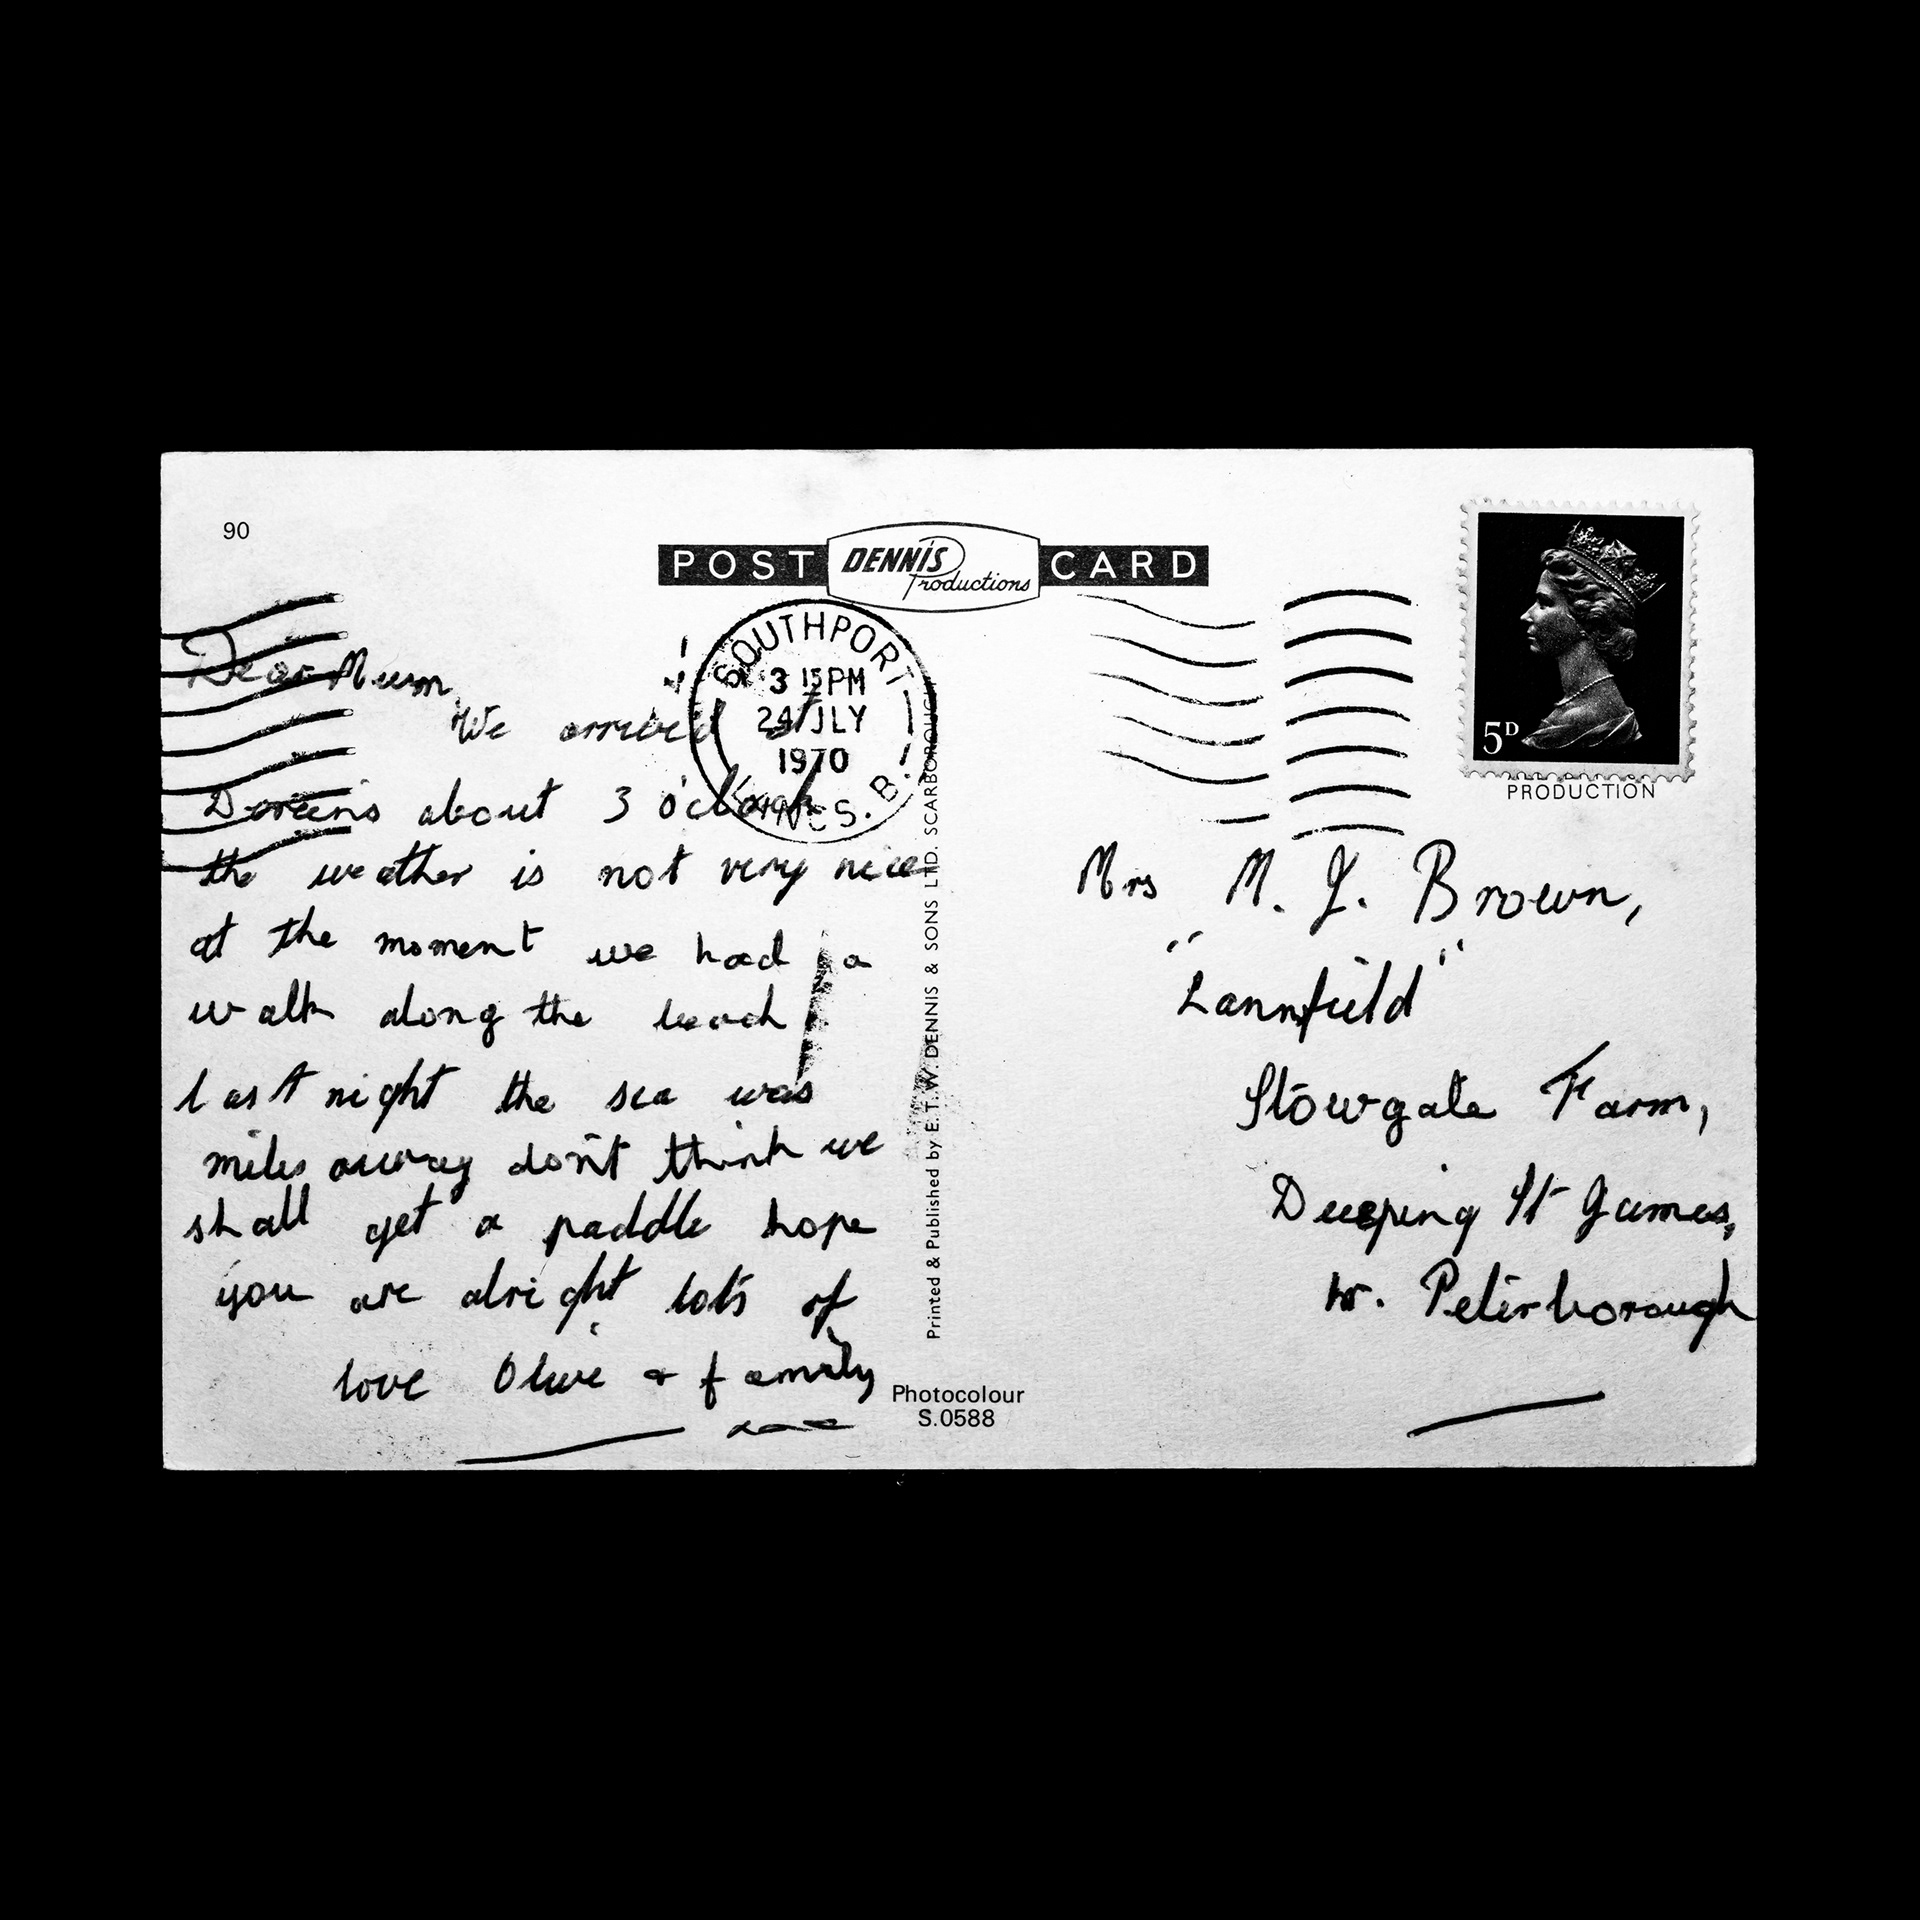 90
POST DENNIS Productions CARD
SOUTHPORT
3 15 PM
24 JLY
1970
LANCS. B.
5D
PRODUCTION
Dear Mum,
We arrived at
Doreens about 3 o'clock
the weather is not very nice
at the moment we had a
walk along the beach
last night the sea was
miles away don't think we
shall get a paddle hope
you are alright lots of
love Olive & family
Printed & Published by E. T. W. DENNIS & SONS LTD. SCARBOROUGH
Photocolour
S.0588
Mrs M. J. Brown,
"Lannfield"
Stowgate Farm,
Deeping St James,
Nr. Peterborough